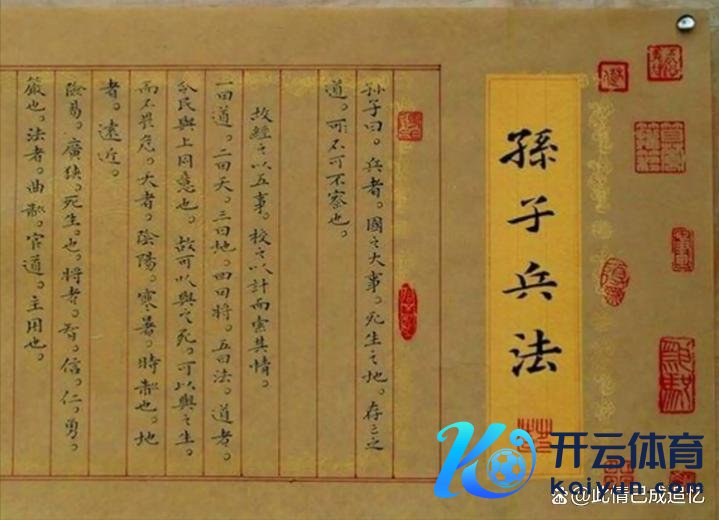 孫子兵法
孙子曰。兵者。國之大事。死生之地。存亡之
道。可不可不察也。
故經之以五事。校之以計而索其情。
一曰道。二曰天。三曰地。四曰將。五曰法。道者。
令民與上同意也。故可以與之死。可以與之生。
而不畏危。天者。陰陽。寒暑。時制也。地
者。遠近。
險易。廣狹。死生。也。將者。智。信。仁。勇。
嚴也。法者。曲制。官道。主用也。
开云体育
kaiyun.com
@此情已成追忆